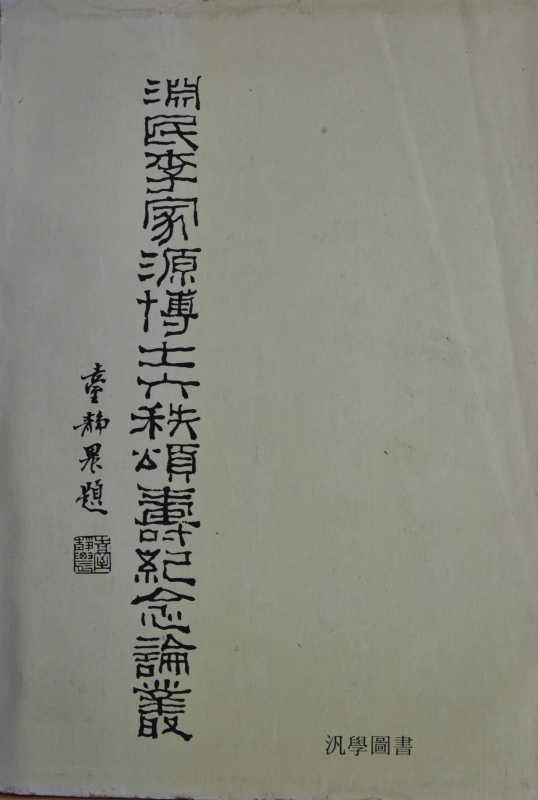 淵民李家源博士六秩頌壽紀念論叢
臺靜農題
汎學圖書